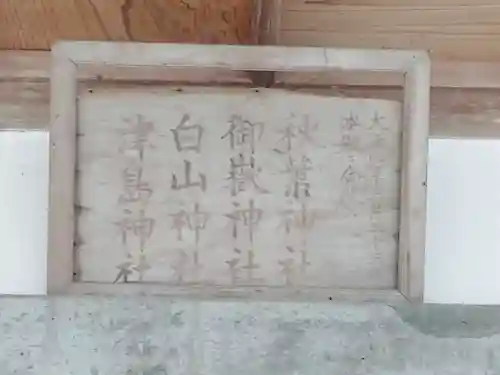 秋葉神社
御嶽神社
白山神社
津島神社